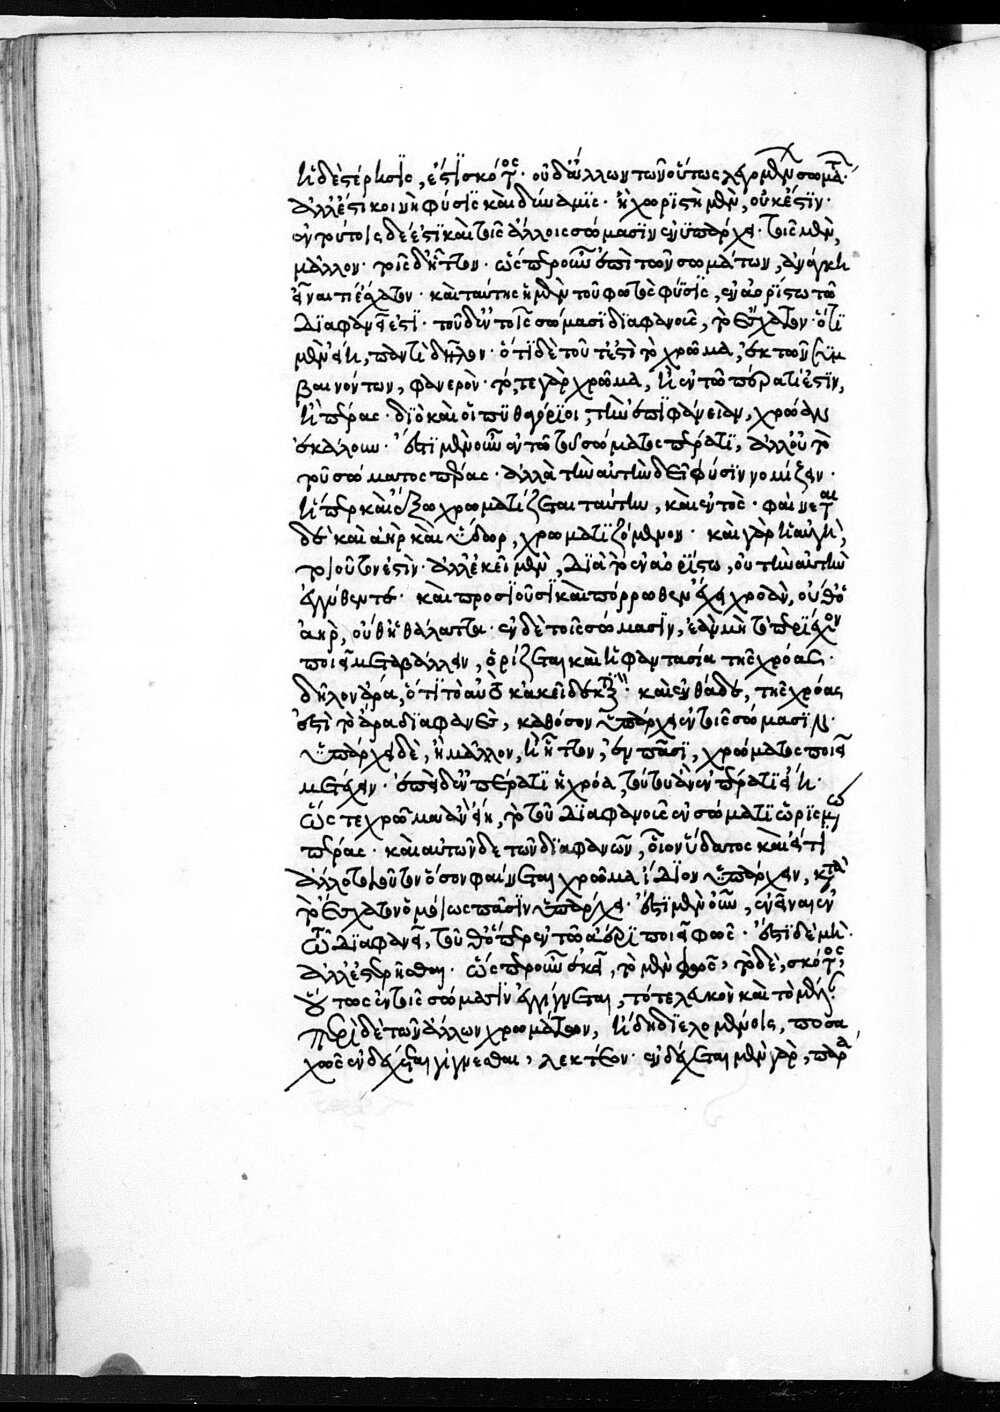 ἡ δὲ στέρησις, ἐστὶ σκότος· οὐδ' ἄλλων τῶν οὕτως λεγομένων σωμάτων·
ἀλλ' ἐστὶ κοινὴ φύσις καὶ δύναμις· ἣ χωριστὴ μὲν, οὐκ ἔστιν·
ἐν τούτοις δέ ἐστι καὶ τοῖς ἄλλοις σώμασιν ἐνυπάρχει· τοῖς μὲν,
μᾶλλον· τοῖς δ' ἧττον· ὥσπερ οὖν ἐπὶ τῶν σωμάτων, ἀνάγκη
εἶναί τι ἔσχατον· καὶ ταύτης ἡ μὲν τοῦ φωτὸς φύσις, ἐν ἀορίστω τῶ
διαφανεῖ ἐστί· τοῦ δ' ἐν τοῖς σώμασι διαφανοῦς, τὸ ἔσχατον· ὅτι
μὲν εἴη, παντὶ δῆλον· ὅτι δὲ τοῦτ' ἐστὶ τὸ χρῶμα, ἐκ τῶν συμ
βαινόντων, φανερόν· τό, τε γὰρ χρῶμα, ἢ ἐν τῶ πέρατί ἐστιν,
ἢ πέρας· διὸ καὶ οἱ πυθαγόριοι, τὴν ἐπιφάνειαν, χρόαν
ἐκάλουν· ἔστι μὲν οὖν ἐν τῶ τοῦ σώματος πέρατι, ἀλλ' οὐ τὸ
τοῦ σώματος πέρας· ἀλλὰ τὴν αὐτὴν δεῖ φύσιν νομίζειν·
ἥπερ καὶ ἔξω χρωματίζεται ταύτην, καὶ ἐντός· φαίνεται
δὲ καὶ ἀὴρ καὶ ὕδωρ, χρωματιζόμενον· καὶ γὰρ ἡ αὐγὴ,
τοιοῦτόν ἐστιν· ἀλλ' ἐκεῖ μὲν, διὰ τὸ ἐν ἀορίστω, οὐ τὴν αὐτὴν
ἐγγύθεν τὲ· καὶ προσιοῦσι καὶ πόρρωθεν ἔχει χρόαν, οὔθ' ὁ
ἀὴρ, οὔθ' ἡ θάλαττα· ἐν δὲ τοῖς σώμασιν, ἐὰν μὴ τὸ περιέχον
ποιεῖ μεταβάλλειν, ὁρίζεται καὶ ἡ φαντασία τῆς χρόας·
δῆλον ἄρα, ὅτι τὸ αὐτὸ κακεῖ δεκτικὸν καὶ ἐνθάδε, τῆς χρόας
ἐστὶ τὸ ἄρα διαφανὲς, καθ' ὅσον ὑπάρχει ἐν τοῖς σώμασιν·
ὑπάρχει δὲ, ἢ μᾶλλον, ἢ ἧττον, ἐν πᾶσι, χρώματος ποιεῖ
μετέχειν· ἐπεὶ δ' ἐν πέρατι ἡ χρόα, τούτου ἂν ἐν πέρατι εἴη·
ὥστε χρῶμα ἂν εἴη, τὸ τοῦ διαφανοῦς ἐν σώματι ὡρισμένω
πέρας· καὶ αὐτῶν δὲ τῶν διαφανῶν, οἷον ὕδατος καὶ εἴ τι
ἄλλο τοιοῦτον ὅσον φαίνεται χρῶμα ἴδιον ὑπάρχειν, κατὰ
τὸ ἔσχατον ὁμοίως πᾶσιν ὑπάρχει· ἔστι μὲν οὖν, ἐνεῖναι ἐν
τῶ διαφανεῖ, τοῦθ' ὅπερ ἐν τῶ ἀέρι ποιεῖ φῶς· ἔστι δὲ μὴ·
ἀλλ' ἐστερῆσθαι· ὥσπερ οὖν ἐκεῖ, τὸ μὲν φῶς, τὸ δὲ, σκότος,
οὕτως ἐν τοῖς σώμασιν ἐγγίνεται, τό τε λευκὸν καὶ τὸ μέλαν·
περὶ δὲ τῶν ἄλλων χρωμάτων, ἤδη διελομένοις, ποσα
χῶς ἐνδέχεται γίγνεσθαι, λεκτέον· ἐνδέχεται μὲν γὰρ, παρὰ